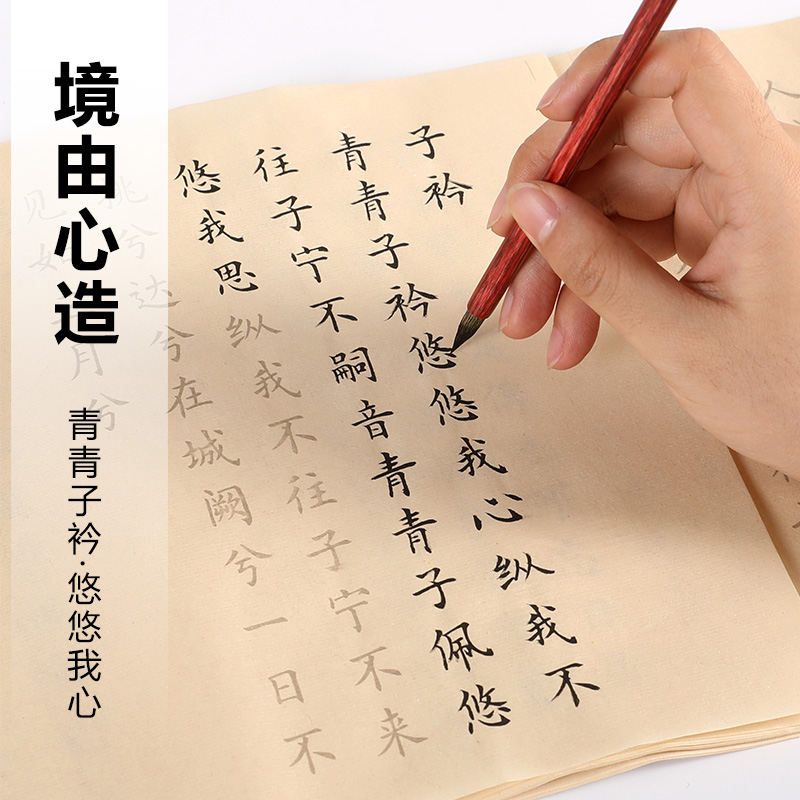 境由心造
青青子衿·悠悠我心
子衿
青青子衿悠悠我心纵我不
往子宁不嗣音青青子佩悠
悠我思纵我不往子宁不来
挑兮达兮在城阙兮一日不
见如月兮